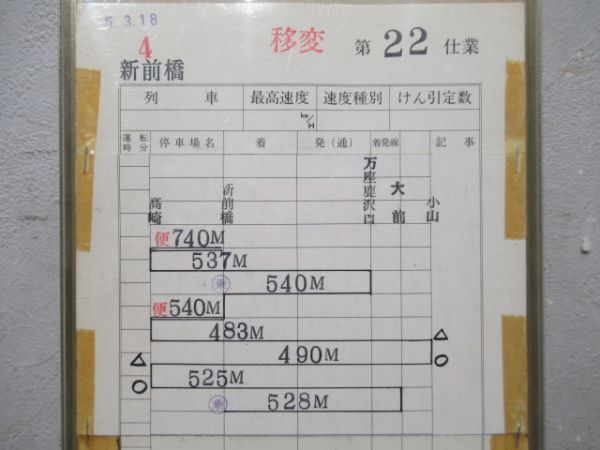 5. 3.18
4
移変 第 22 仕業
新前橋
列 車 最高速度 速度種別 けん引定数
km/H
運転時分 停車場名 着 発(通) 着発線 記事
高崎 新前橋 万座鹿沢口 大前 小山
便740M
537M
乗 540M
便540M
483M
△ 490M △
○ 525M ○
乗 528M